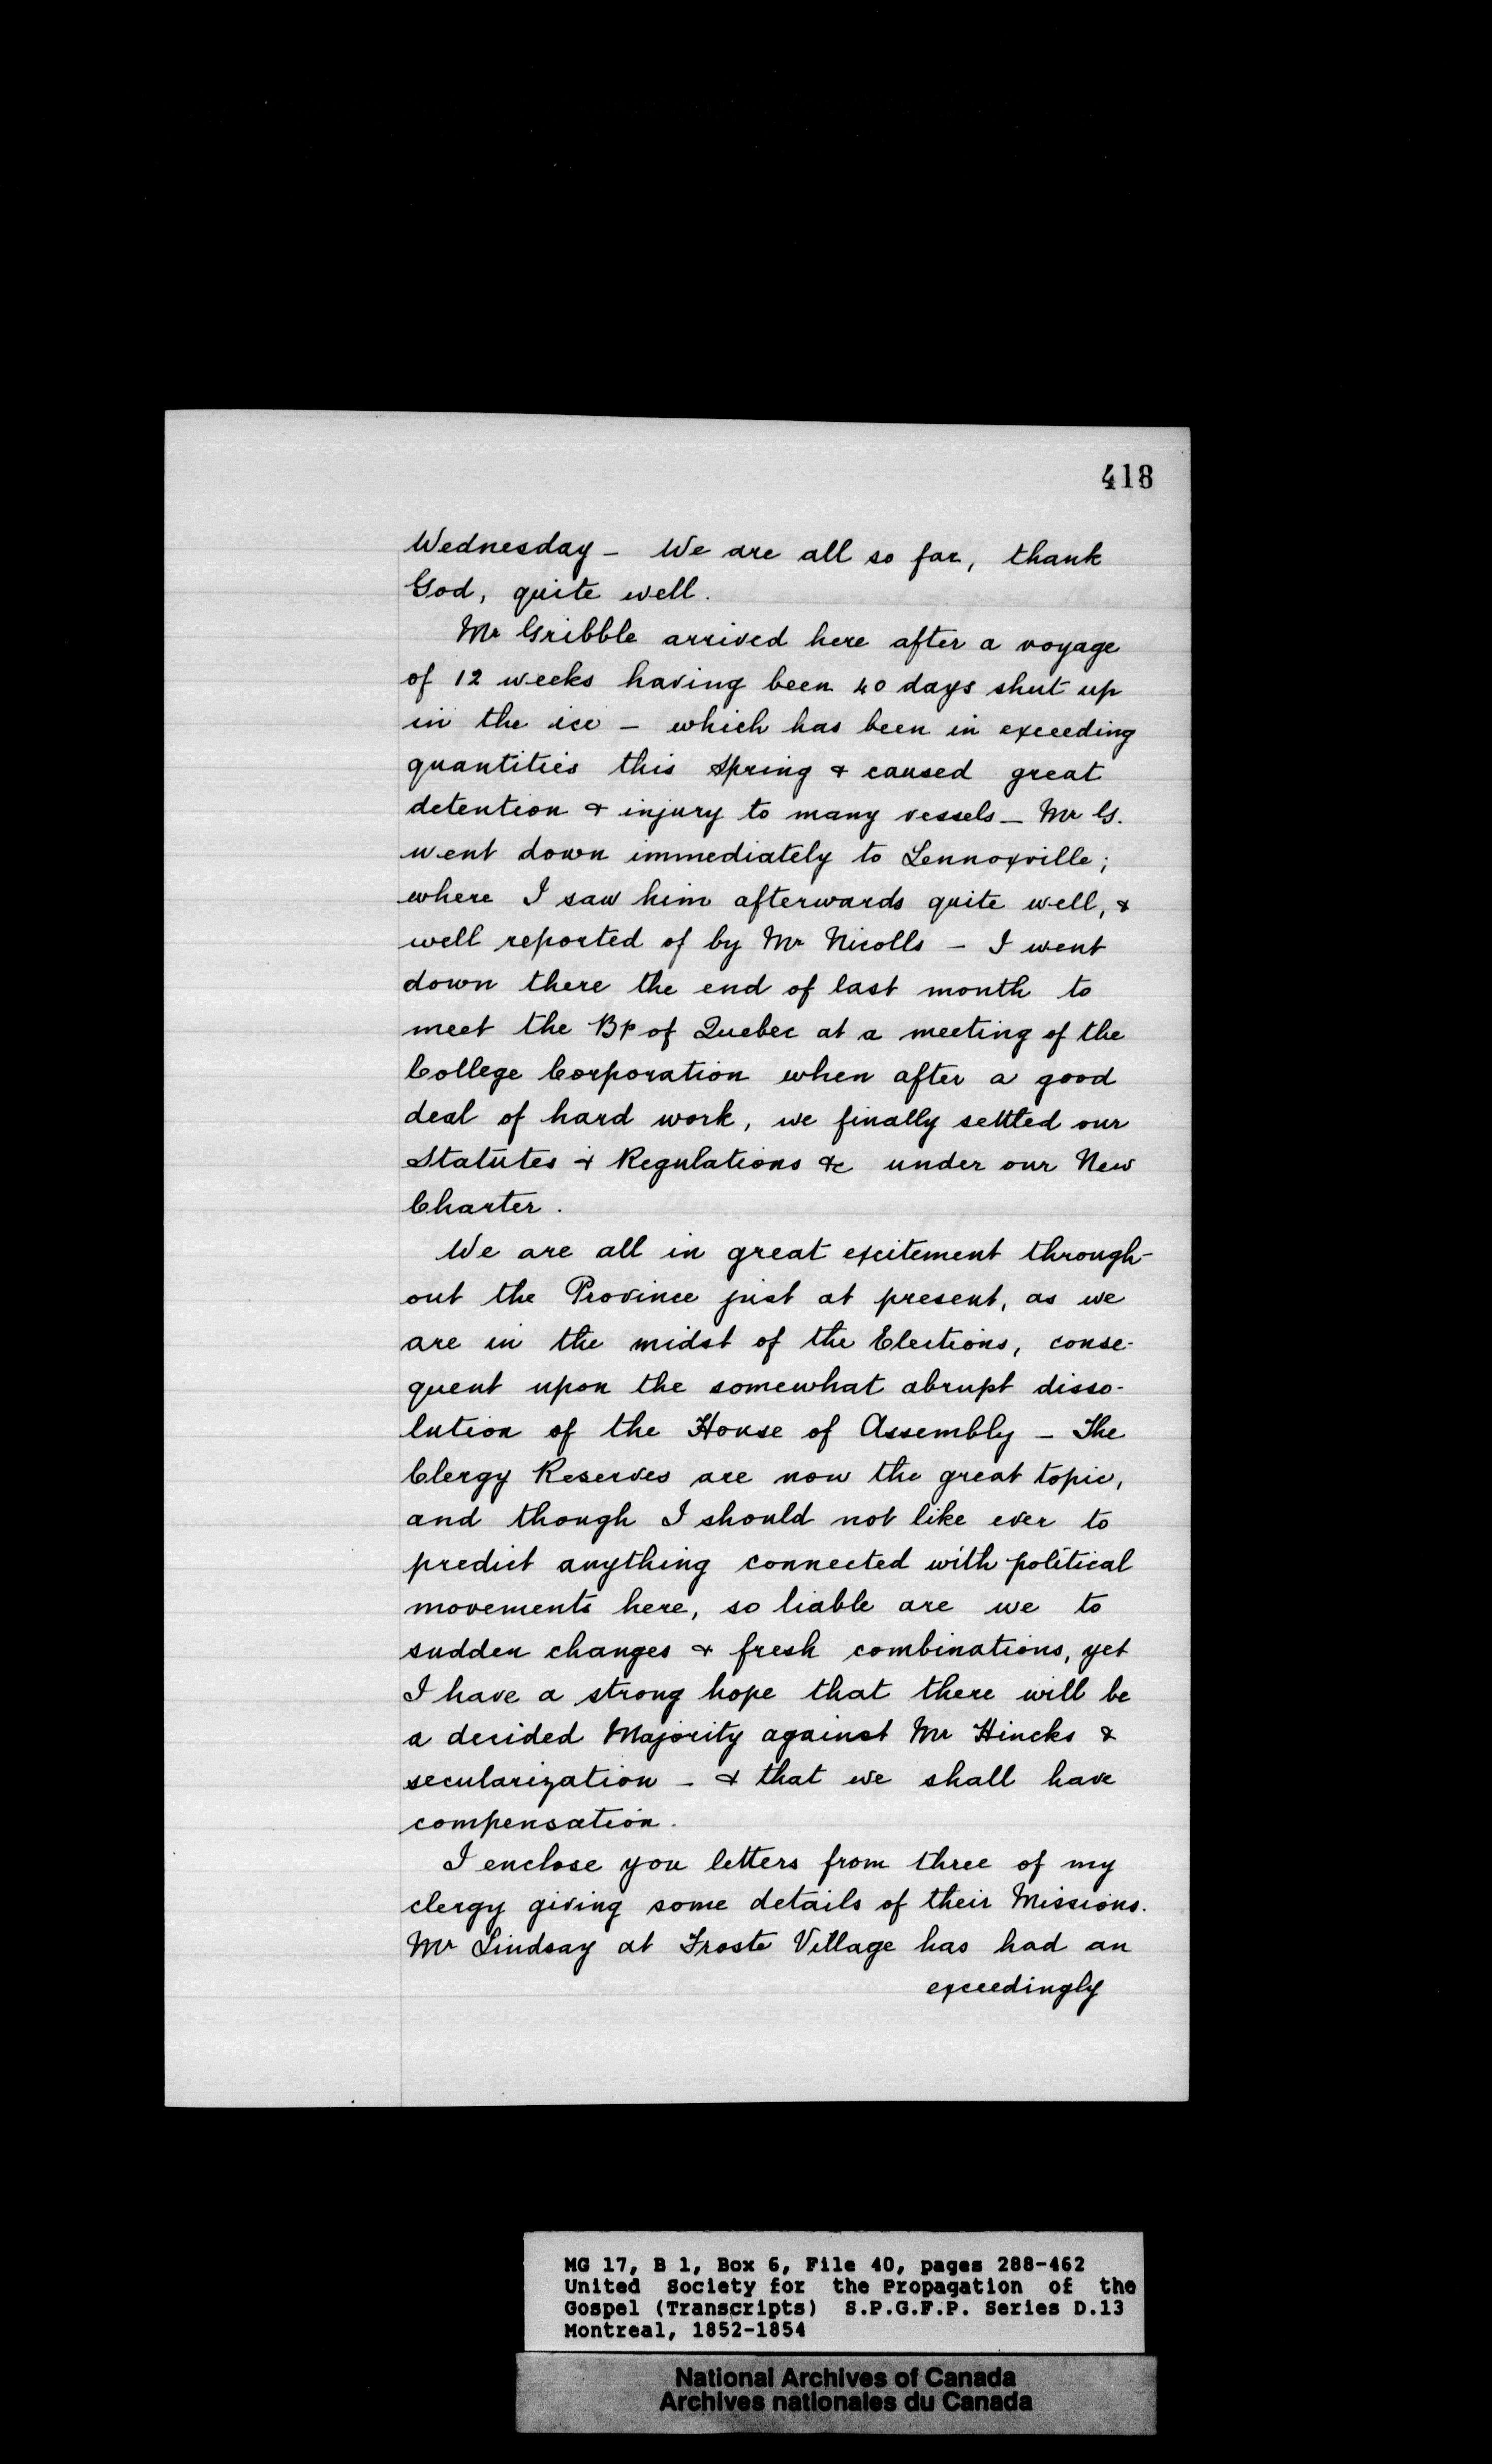 418
Wednesday - We are all so far, thank
God, quite well.
Mr Gribble arrived here after a voyage
of 12 weeks having been 40 days shut up
in the ice - which has been in exceeding
quantities this Spring & caused great
detention & injury to many vessels - Mr G.
went down immediately to Lennoxville;
where I saw him afterwards quite well, &
well reported of by Mr Nicolls - I went
down there the end of last month to
meet the Bp of Quebec at a meeting of the
College Corporation when after a good
deal of hard work, we finally settled our
Statutes & Regulations &c under our New
Charter.
We are all in great excitement through-
out the Province just at present, as we
are in the midst of the Elections, conse-
quent upon the somewhat abrupt disso-
lution of the House of Assembly - The
Clergy Reserves are now the great topic,
and though I should not like ever to
predict anything connected with political
movements here, so liable are we to
sudden changes & fresh combinations, yet
I have a strong hope that there will be
a decided Majority against Mr Hincks &
secularization - & that we shall have
compensation.
I enclose you letters from three of my
clergy giving some details of their Missions.
Mr Lindsay at Frosts Village has had an
exceedingly
MG 17, B 1, Box 6, File 40, pages 288-462
United Society for the Propagation of the
Gospel (Transcripts) S.P.G.F.P. Series D.13
Montreal, 1852-1854
National Archives of Canada
Archives nationales du Canada